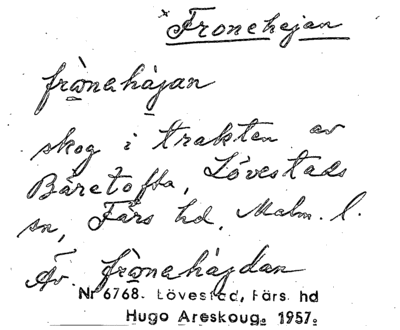 × Fronehejan
frònehàjan
skog i trakten av
Båretofta, Lövestads
sn, Färs hd, Malm. l.
Äv. frònehàgdan
Nr 6768. Lövestad, Färs. hd
Hugo Areskoug. 1957.